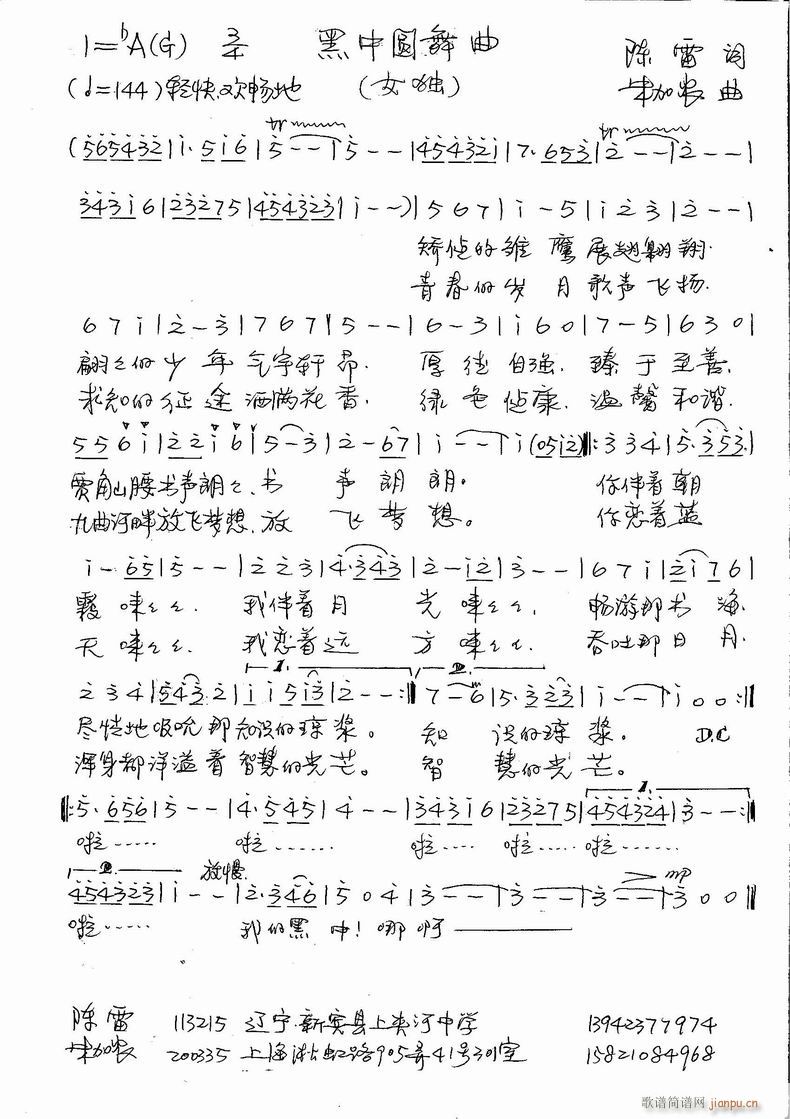 1=ᵇA(G) 3/4 黑中圆舞曲 陈雷 词
(♩=144) 轻快.欢畅地 (女独) 朱加农 曲
(565432|i·5i6|5--|5--|45432i|7·653|2--|2--|
343i6|23275|454323|i--)|567|i-5|i23|2--|
矫健的雏鹰展翅翱翔.
青春的岁月歌声飞扬.
67i|2-3|767|5--|6-3|i60|7-5|630|
翩々的少年气宇轩昂. 厚德自强.臻于至善.
求知的征途洒满花香. 绿色健康.温馨和谐.
556i|22i6i|5-3|2-67|i--|i(05i2)‖:334|5·353|
山腰书声朗々、书声朗朗。 你伴着朝
九曲河畔放飞梦想.放飞梦想。 你恋着蓝
i-65|5--|223|4·343|2-i2|3--|67i|2i76|
霞 啦々々. 我伴着月光啦々々. 畅游那书海.
天 啦々々. 我恋着远方啦々々. 吞吐那日月.
1. 2.
234|5432|ii5i3|2--:‖7-6|5·323|i--|i00‖
尽情地吸吮那知识的琼浆。 知识的琼浆。 D.C
浑身都洋溢着智慧的光芒。 智慧的光芒。
1.
‖:5·656|5--|4·545|4--|343i6|23275|454324|3--:‖
啦…… 啦…… 啦…… 啦…… 啦……
2. 放慢
454323|i--|2·346|504|3--|3--|3--|300‖
mp
啦…… 我的黑中!哪啊
陈雷 113215 辽宁.新宾县上夹河中学 13942377974
朱加农 200335 上海淞虹路905弄41号301室 15821084968
歌谱简谱网
jianpu.cn